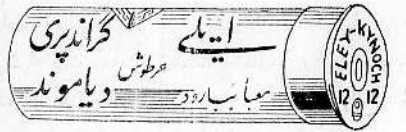 ایلی گراندپری
خرطوش
معبأ ببارود دیاموند
ELEX-KYNOCH
12 12